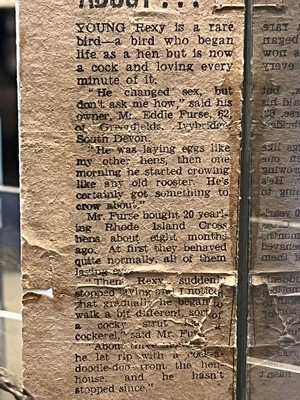 ABOUT...
YOUNG Rexy is a rare
bird—a bird who began
life as a hen but is now
a cock and loving every
minute of it.
"He changed sex, but
don't ask me how," said his
owner, Mr. Eddie Furse, 62,
of Greenfields, Ivybridge,
South Devon.
"He was laying eggs like
my other hens, then one
morning he started crowing
like any old rooster. He's
certainly got something to
crow about."
Mr. Furse bought 20 year-
ling Rhode Island Cross
hens about eight months
ago. At first they behaved
quite normally, all of them
laying
"Then Rexy suddenly
stopped laying and I noticed
that gradually he began to
walk a bit different, sort of
a cocky strut like a
cockerel," said Mr. Furse.
"About three
he let rip with a cock-a-
doodle-doo from the hen-
house, and he hasn't
stopped since."